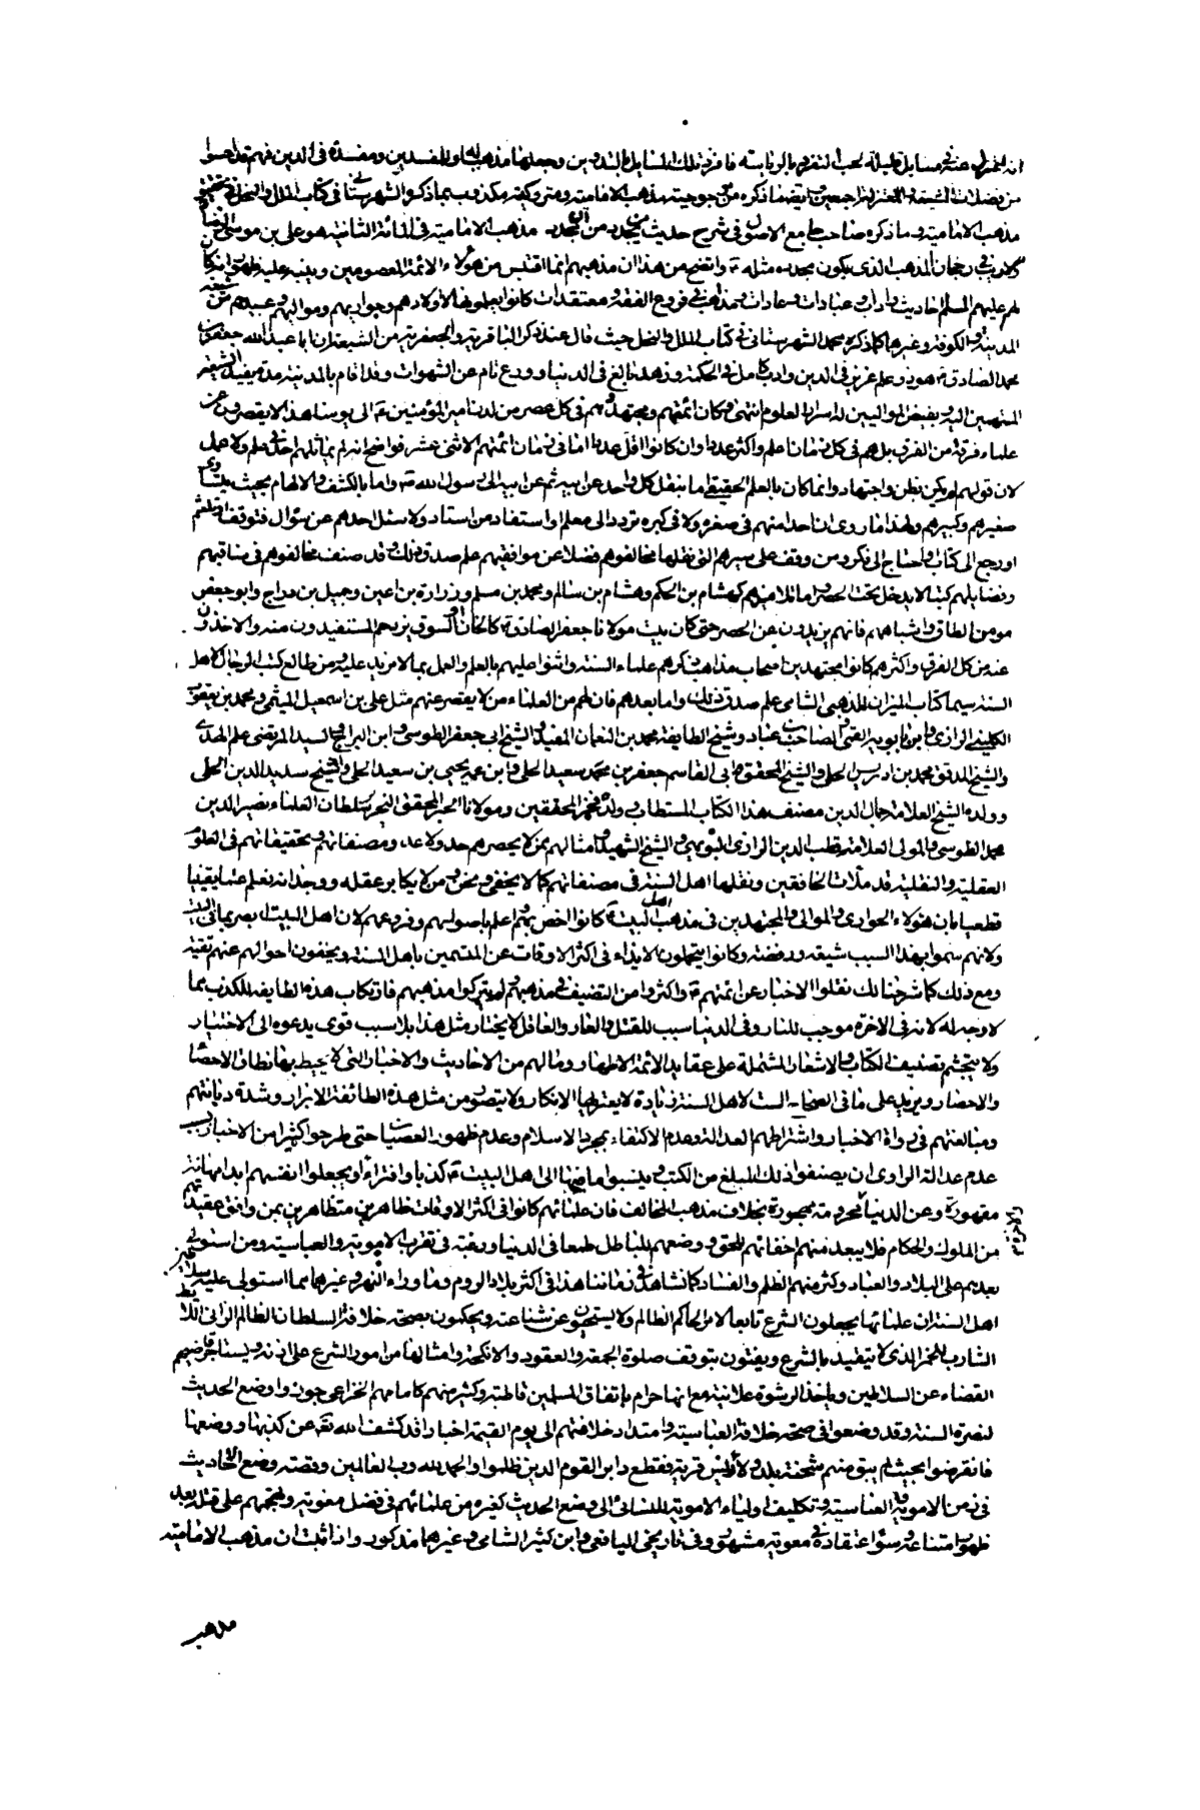 انه اعتزل عنه في مسايل قليلة لحب التفرد بالرياسة فافرد تلك المسايل بالتدوين وجعلها مذهبا له وللمفسدين ومفسدة في الدين فهم قد
من فضلات الشيعة والمعتزلة اجمعين وايضا ما ذكره من مرجوحية مذهب الامامية ومتروكيته مكذوب بما ذكره الشهرستاني في كتاب الملل والنحل في
مذهب الامامية وما ذكره صاحب جامع الاصول في شرح حديث من يجدد من ان مجدد مذهب الامامية في المائة الثانية هو علي بن موسى الرضا
ولا ريب في رجحان المذهب الذي يكون مجدده مثله واتضح من هذا ان مذهبهم انما اقتبس من هؤلاء الائمة المعصومين وينبه عليه ظهور ان كان
لهم عليهم السلم احاديث واداب وعبادات وعادات ومذاهب في فروع الفقه ومعتقدات كانوا يعلمونها لاولادهم وجواريهم ومواليهم وعبيدهم من شيعة
المدينة والكوفة وغيرها كما ذكره محمد الشهرستاني في كتاب الملل والنحل حيث قال عند ذكر الباقرية والجعفرية من الشيعة ان ابا عبد الله جعفر بن
محمد الصادق هو ذو علم غزير في الدين وادب كامل في الحكمة وزهد بالغ في الدنيا وورع تام عن الشهوات وقد اقام بالمدينة مدة يفيد الشيعة
المنتمين اليه ويفيض على الموالين له اسرار العلوم انتهى وكان ائمتهم ومجتهدوهم في كل عصر من لدن امير المؤمنين الى يومنا هذا لا يقصرون عن
علماء فرقة من الفرق بل هم في كل زمان اعلم واكثر عددا وان كانوا اقل عددا اما في زمان ائمتهم الاثني عشر فواضح انه لم يماثلهم احد في علم ولا عمل
لان قولهم لم يكن بظن واجتهاد وانما كان بالعلم الحقيقي اما بنقل كل واحد عن ابيه ثم عن ابيه الى رسول الله واما بالكشف والالهام بحيث يتساوى
صغيرهم وكبيرهم ولهذا ما روى ان احدا منهم في صغره ولا في كبره تردد الى معلم او استفاد من استاد ولا سئل احدهم عن سؤال فتوقف او تلعثم
او رجع الى كتاب او احتاج الى فكر ومن وقف على سيرهم التي نقلها مخالفوهم فضلا عن موافقيهم علم صدق ذلك وقد صنف مخالفوهم في مناقبهم
وفضايلهم كتبا لا يدخل تحت الحصر واما تلاميذهم كهشام بن الحكم وهشام بن سالم ومحمد بن مسلم وزرارة بن اعين وجميل بن دراج وابو جعفر
مومن الطاق واشباههم فانهم يزيدون عن الحصر حتى كان بيت مولانا جعفر الصادق كالخان والسوق يزدحم المستفيدون منه والاخذون
عنه من كل الفرق واكثرهم كانوا مجتهدين اصحاب مذاهب ذكرهم علماء السنة واثنوا عليهم بالعلم والعمل بما لا مزيد عليه ومن طالع كتب الرجال لاهل
السنة سيما كتاب الميزان للذهبي الشامي علم صدق ذلك واما بعدهم فان لهم من العلماء من لا يقصر عنهم مثل علي بن اسمعيل الميثمي ومحمد بن يعقوب
الكليني الرازي وابن بابويه القمي والصاحب بن عباد وشيخ الطايفة محمد بن النعمان المفيد والشيخ ابي جعفر الطوسي وابن البراج والسيد المرتضى علم الهدى
والشيخ المدقق محمد بن ادريس الحلي والشيخ المحقق ابي القاسم جعفر بن سعيد الحلي وابن عمه يحيى بن سعيد الحلي والشيخ سديد الدين الحلي
وولده الشيخ العلامة جمال الدين مصنف هذا الكتاب المستطاب وولده فخر المحققين ومولانا الحبر المحقق النحرير سلطان العلماء نصير الدين
محمد الطوسي والمولى العلامة قطب الدين الرازي البويهي والشيخ الشهيد وامثالهم ممن لا يحصرهم حد ولا عد ومصنفاتهم وتحقيقاتهم في العلوم
العقلية والنقلية قد ملات الخافقين ونقلها اهل السنة في مصنفاتهم كما لا يخفى ونحن ومن لا يكابر عقله ووجدانه نعلم علما يقينيا
قطعيا بان هؤلاء الحواري والموالي والمجتهدين في مذهب اهل البيت كانوا اخص بهم واعلم باصولهم وفروعهم لان اهل البيت ابصر بما في البيت
ولانهم سموا بهذا السبب شيعة ورفضة وكانوا يتحملون الايذاء في اكثر الاوقات عن المتسمين باهل السنة ويخفون احوالهم عنهم تقية
ومع ذلك كما شرحنا لك نقلوا الاخبار عن ائمتهم واكثروا من التصنيف في مذهبهم ولم يتركوا مذهبهم فارتكاب هذه الطايفة للكذب مما
لا وجه له لانه في الاخرة موجب للنار وفي الدنيا سبب للقتل والعار والعاقل لا يختار مثل هذا بلا سبب قوي يدعوه الى الاختيار
ولا يتجشم تصنيف الكتاب والاشعار المشتملة على عقايد الائمة الاطهار وما لهم من الاحاديث والاخبار التي لا يحيط بها نطاق الاحصا
والاحصار ويزيد على ما في الصحاح الست لاهل السنة زيادة لا يعتريها الانكار ولا يتصور من مثل هذه الطائفة الابرار وشدة ديانتهم
ومبالغتهم في رواة الاخبار واشتراطهم العدالة وعدم الاكتفاء بمجرد الاسلام وعدم ظهور العصيان حتى طرحوا كثيرا من الاخبار بسبب
عدم عدالة الراوي ان يصنفوا ذلك المبلغ من الكتب وينسبوا ما فيها الى اهل البيت كذبا وافتراء او يجعلوا انفسهم ابدا مهانة
مقهورة وعن الدنيا محرومة مهجورة بخلاف مذهب المخالف فان علمائهم كانوا في اكثر الاوقات ظاهرين متظاهرين بمن وافق عقيدتهم
من الملوك والحكام فلا يبعد منهم اخفائهم للحق ووضعهم للباطل طمعا في الدنيا ورغبة في تقرب الاموية والعباسية ومن استولى
بعدهم على البلاد والعباد وكثر منهم الظلم والفساد كما نشاهد في زماننا هذا في اكثر بلاد الروم وما وراء النهر وغيرهما مما استولى عليه
اهل السنة ان علمائها يجعلون الشرع تابعا لامر الحاكم الظالم ولا يستحيون عن شناعته ويحكمون بصحة خلافة السلطان الظالم الزاني
الشارب للخمر الذي لا يتقيد بالشرع ويفتون بتوقف صلوة الجمعة والعقود والانكحة وامثالها من امور الشرع على اذنه ويستاجر قاضيهم
القضاء عن السلاطين وياخذ الرشوة علانية مع انها حرام باتفاق المسلمين قاطبة وكثير منهم كامامهم الخزاعي جوزوا وضع الحديث
لنصرة السنة وقد وضعوا في صحة خلافة العباسية وامتداد خلافتهم الى يوم القيمة اخبارا قد كشف الله عن كذبها ووضعها
فانقرضوا بحيث لم يبق منهم شحنة بلد ولا رئيس قرية فقطع دابر القوم الذين ظلموا والحمد لله رب العالمين وقصة وضع الاحاديث
في زمن الاموية والعباسية وتكليف اولياء الاموية للنسائي الى وضع الحديث كغيره من علمائهم في فضل معوية وهجمهم على قتله بعد
ظهور امتناعه وسوء اعتقاده في معوية مشهور وفي تاريخي اليافعي وابن كثير الشامي وغيرهما مذكور واذا ثبت ان مذهب الامامية
مذهب